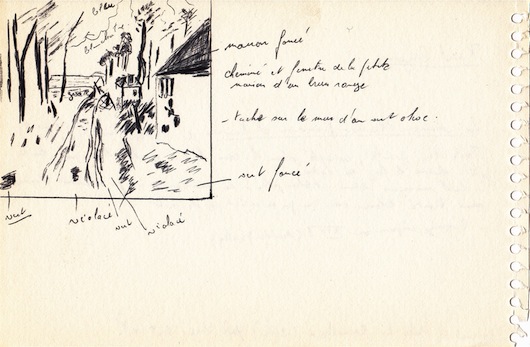 bleu
marron foncé
cheminé et fenetre de la petite
maison d'un brun rouge
- tache sur le mur d'un vert choc.
vert foncé
vert
violacé
vert
violacé